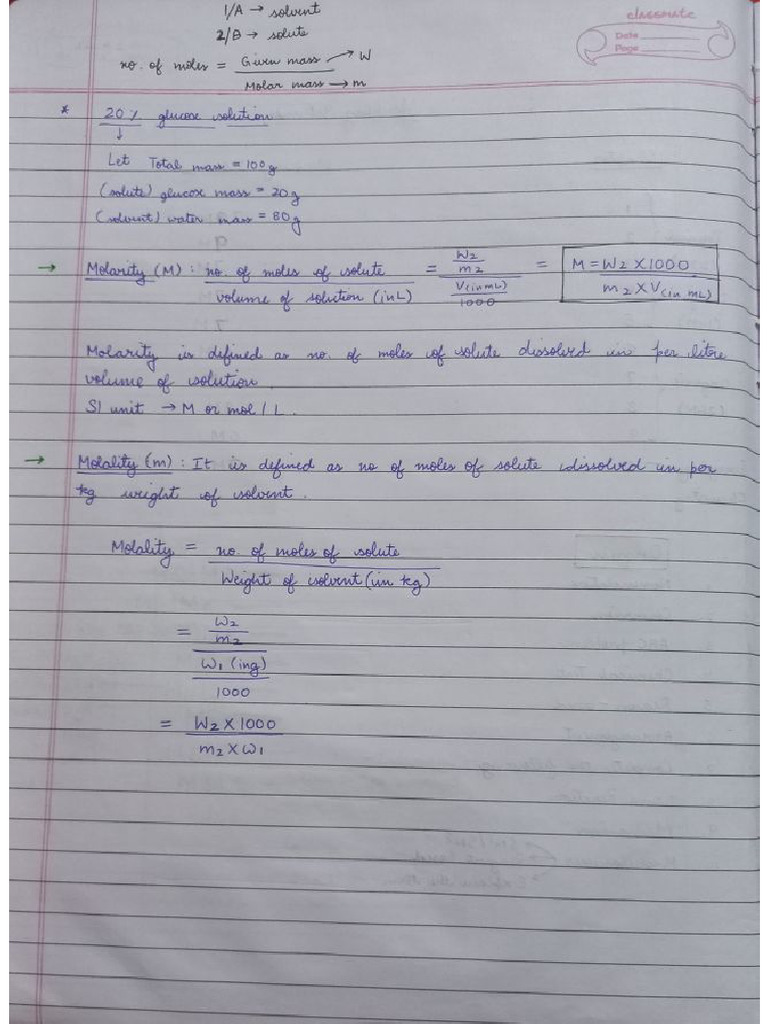 1/A → solvent
classmate
Date
Page
2/B → solute
no. of moles = Given mass → W
Molar mass → m
* 20% glucose solution
↓
Let Total mass = 100g
(solute) glucose mass = 20g
(solvent) water mass = 80g
→ Molarity (M) : no. of moles of solute = W2 = M = W2 X 1000
m2
volume of solution (in L) V(in mL) m2 X V(in mL)
1000
Molarity is defined as no. of moles of solute dissolved in per litre
volume of solution.
SI unit → M or mol / L.
→ Molality (m) : It is defined as no of moles of solute dissolved in per
kg weight of solvent.
Molality = no. of moles of solute
Weight of solvent (in kg)
= W2
m2
W1 (in g)
1000
= W2 X 1000
m2 X W1